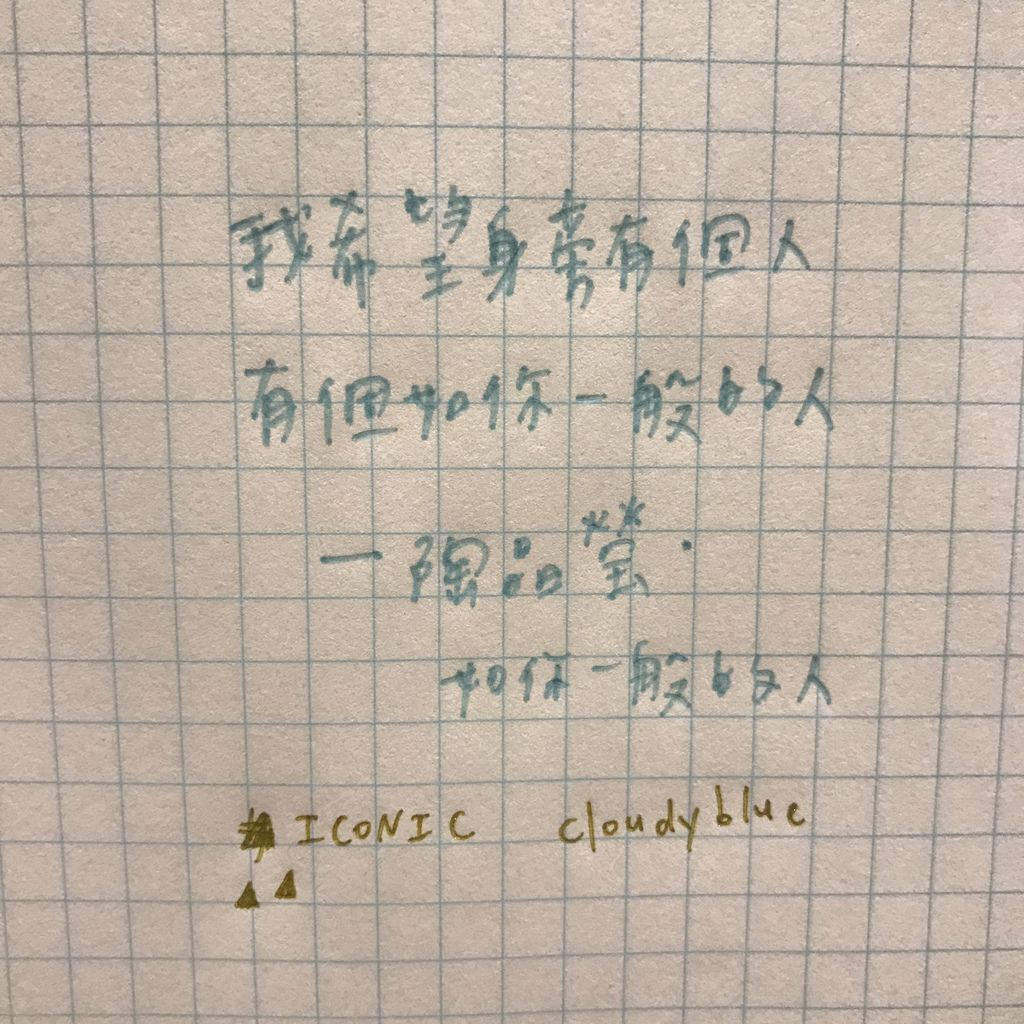 我希望身旁有個人
有個如你一般的人
一陶晶瑩.
如你一般的人
# ICONIC cloudy blue